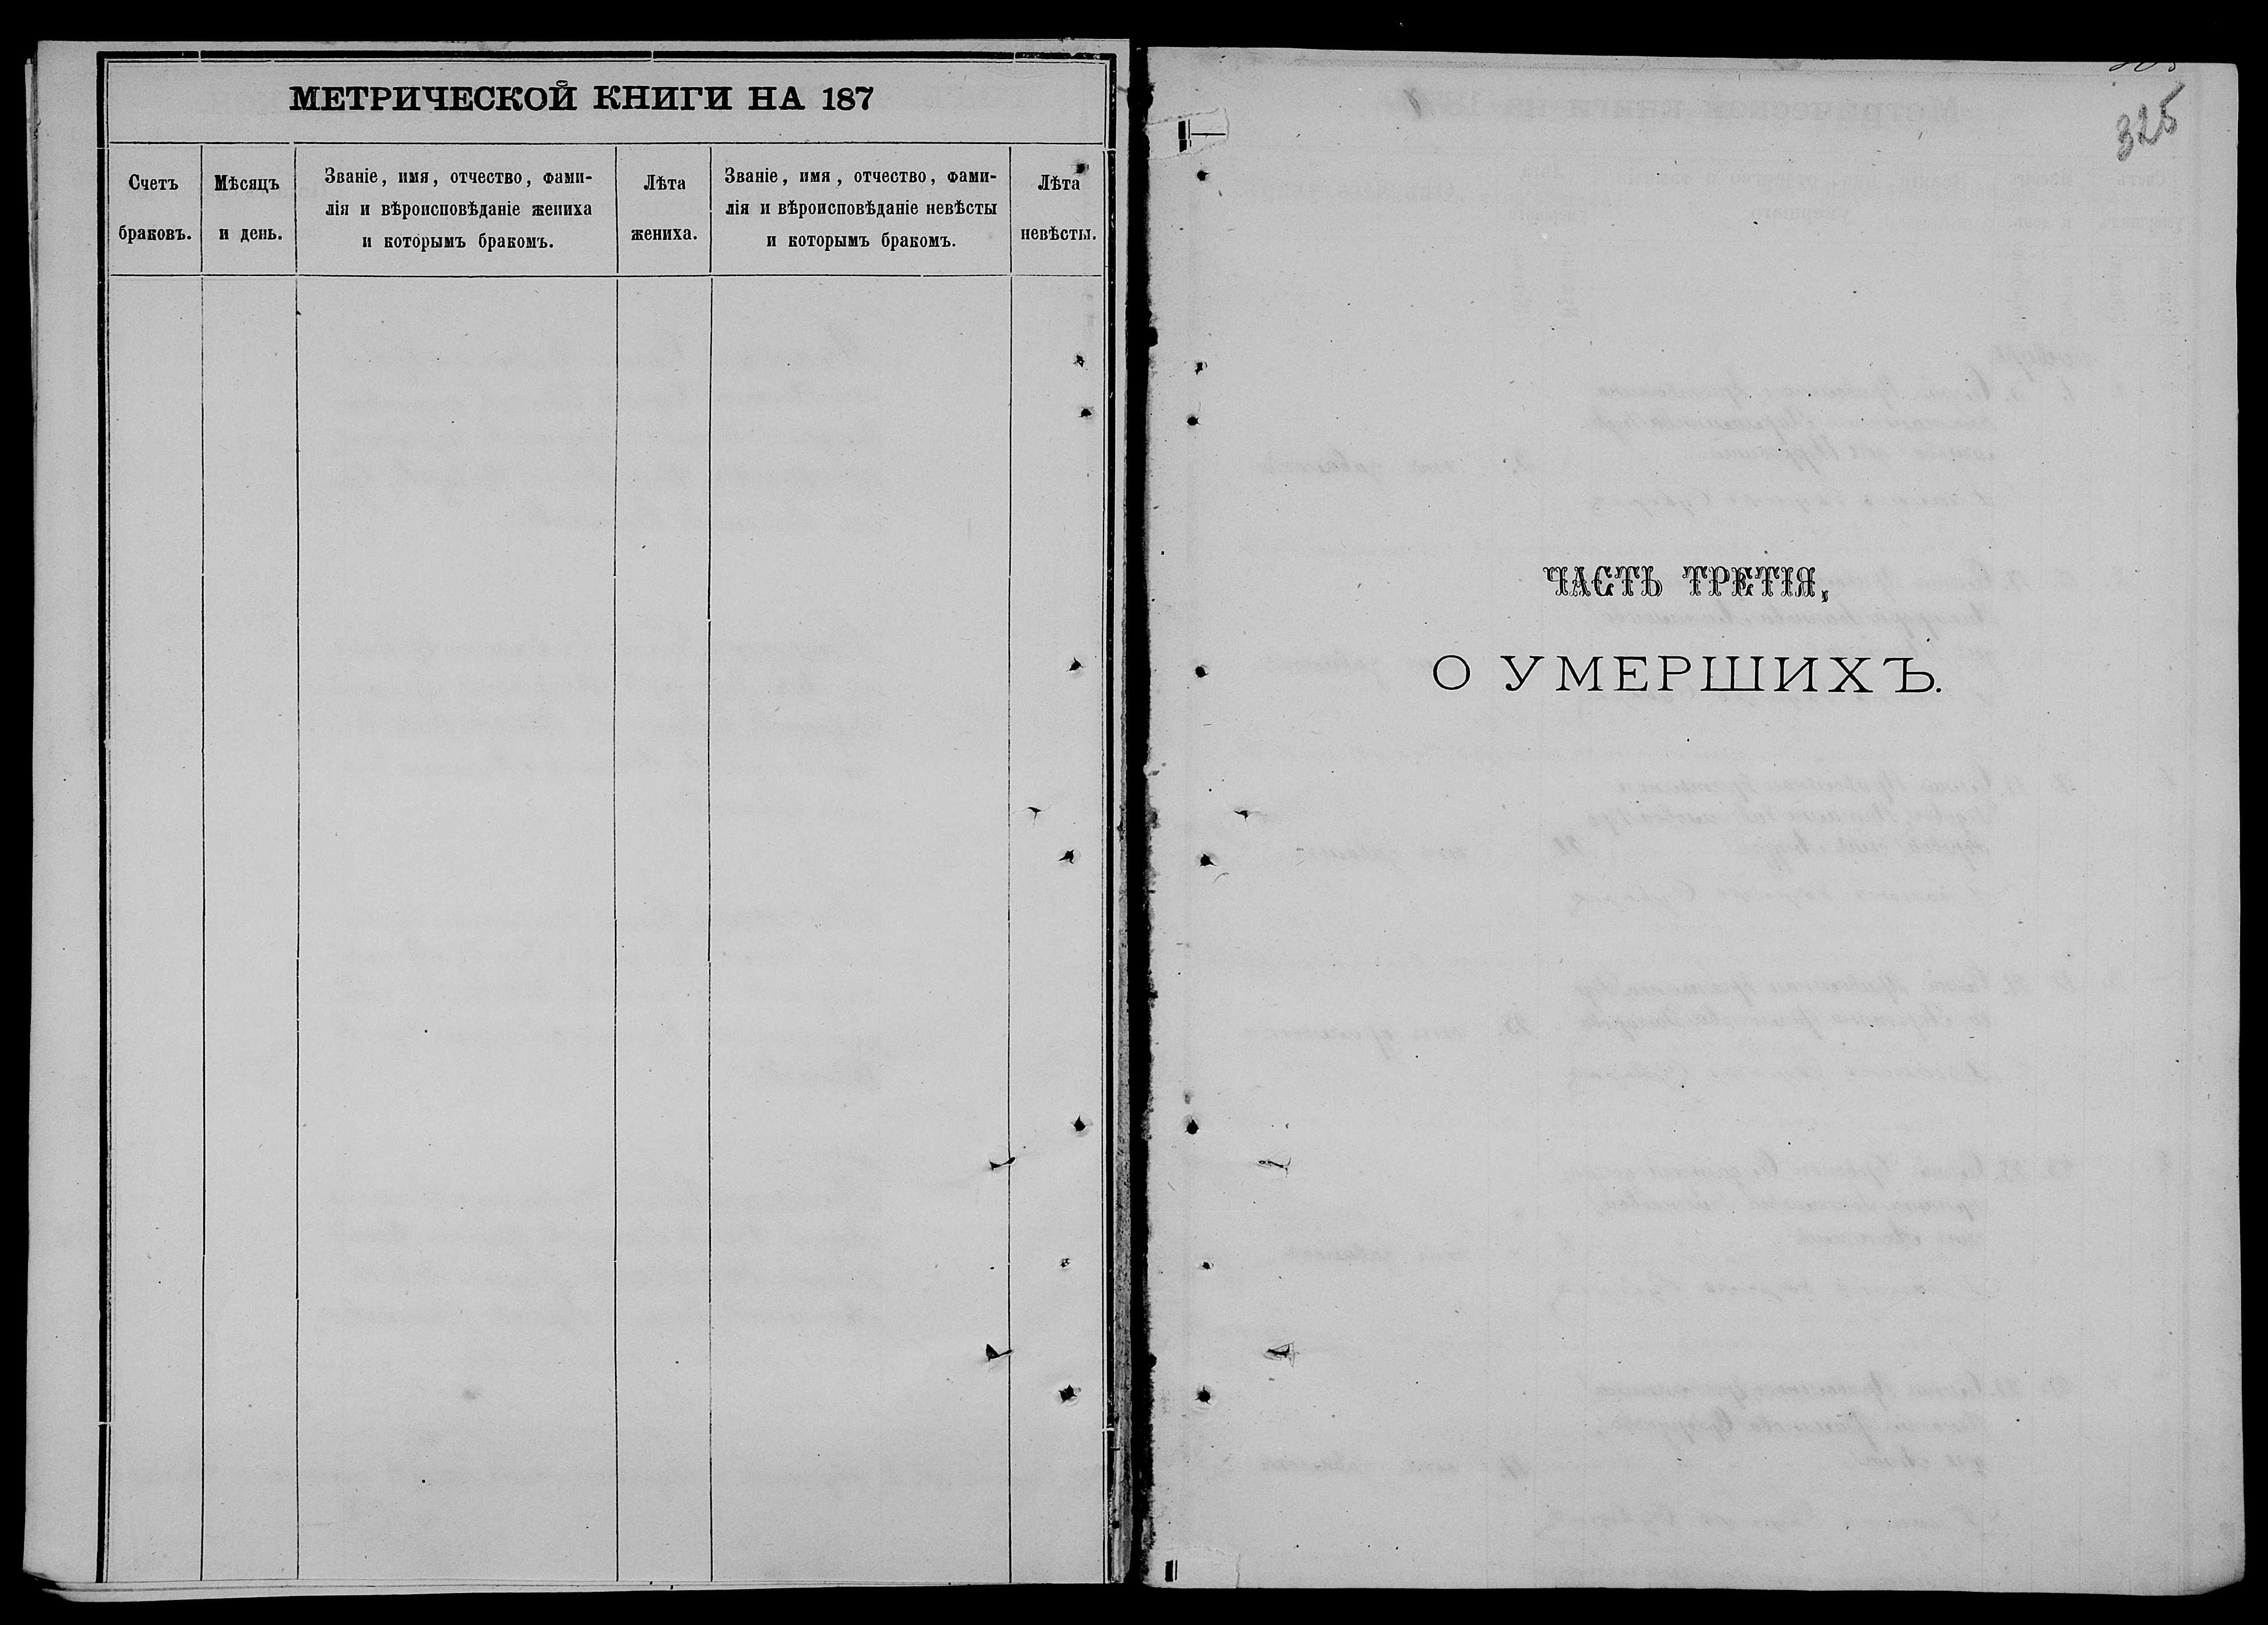 МЕТРИЧЕСКОЙ КНИГИ НА 187
Счетъ
браковъ.
Мѣсяцъ
и день.
Званіе, имя, отчество, фами-
лія и вѣроисповѣданіе жениха
и которымъ бракомъ.
Лѣта
жениха.
Званіе, имя, отчество, фами-
лія и вѣроисповѣданіе невѣсты
и которымъ бракомъ.
Лѣта
невѣсты.
325
ЧАСТЬ ТРЕТІЯ,
О УМЕРШИХЪ.